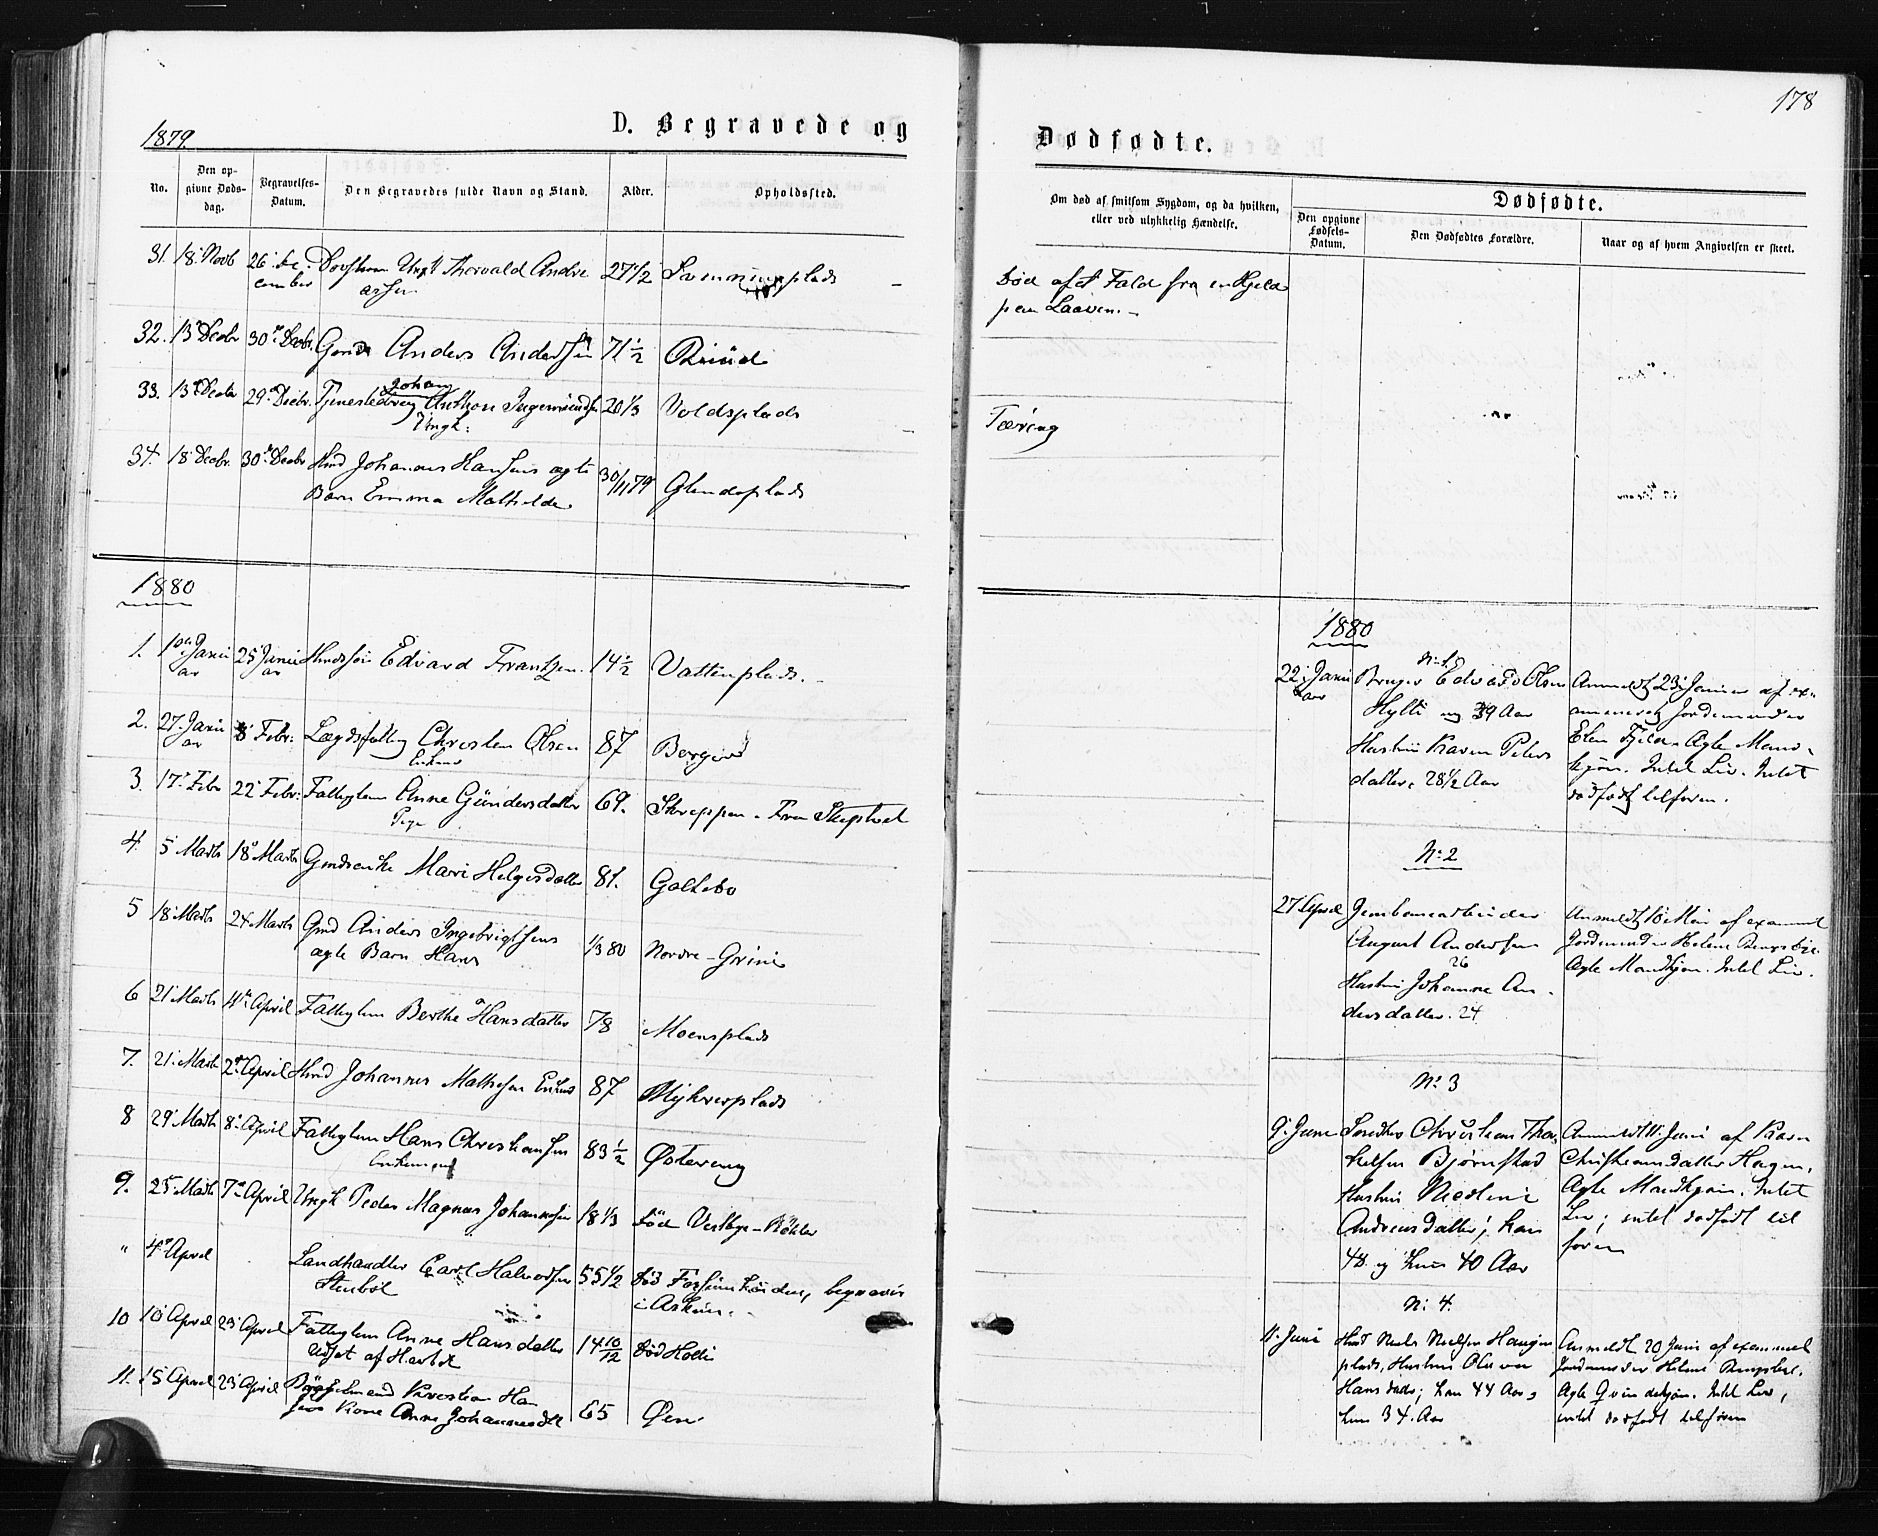 1879
D. Begravede og
No.
Den op-
givne Døds-
dag.
Begravelses-
Datum.
Den Begravedes fulde Navn og Stand.
Alder.
Opholdssted.
31. 18 Novb 26 De- Ungk Thorvald Andre 27 1/2
cember assen
32. 13 Decbr 30 Decbr. Gmd Anders Andersen 71 1/2
33. 13 Decbr 29 Decbr. Johan
Anthon Ingemundsen 20 1/3 Voldsplads
Ungk:
34. 18 Decbr. 30 Decbr Hmd Johannes Hansens ægte 30/11 79 Glendeplads
Barn Emma Mathilde
1880
1. 10 Janu 25 Janu Edvard Frantzen 14 1/2
ar ar
2. 27. Janu 8 Febr: Christen Olsen 87
ar Enkem
3. 17 Febr 22 Febr: Fattiglem Anne Gundersdatter 69.
Pige
4. 5 Marts 18 Marts Gmdsenke Mari Helgesdatter 81. Galtebo
5 18 Marts 24 Marts Gmd Anders Ingebrigtsens 1/3 80 Nordre-Grini
ægte Barn Hans
6 21 Marts 4 April Fattiglem Berthe Hansdatter 78 Moensplads
7. 21. Marts 2 April Hmd Johannes Mathesen Enkem 87
8 29 Marts 8 April Fattiglem Hans Christensen 83 1/2 Østereng
Enkemand
9. 25 Marts 7 April Ungk Peder Magnus Johannesen 18 1/3 død Vestby-
" 4 April Landhandler Carl Halvorsen 55 1/2 død begravet
Stenbøl i Askim.
10 10 April 23 April Fattiglem Anne Hansdatter 14 10/12 død
11. 15 April 23 April Kristian Han
sens Kone Anne Johannesdtr 65 Øen
178
Dødfødte.
Om død af smitsom Sygdom, og da hvilken,
eller ved ulykkelig Hændelse.
Dødfødte.
Den opgivne
Fødsels-
Datum.
Den Dødfødtes Forældre.
Naar og af hvem Angivelsen er skeet.
Død af et Fald fra en Hjeld
paa Laaven.
Tæring
1880
No 1.
22 Janu Bruger Edvard Olsen Anmeldt 23 Januar af ex-
ar Hytli og 39 Aar amineret Jordemoder
Hustru Karen Peders Elen Ægte Mand-
datter 28 1/2 Aar kjøn. Intet Liv. Intet
dødfødt tilforn.
No 2
27 April Jernbanearbeider Anmeldt 10 Mai af examd
August Andersen Jordemoder Helene
26 Ægte Mandkjøn. Intet Liv.
Hustru Johanne An-
dersdatter. 24
No 3
9. Juni Christian Thor Anmeldt 11 Juni af Karen
kelsen Bjørnstad Christiansdatter Hagen,
Hustru Ægte Mandkjøn. Intet
Andreasdatter; han Liv; intet dødfødt til
48 og hun 40 Aar forn
No 4.
11. Juni Hmd Niels Nielsen Haugen Anmeldt 20 Juni af examd
plads, Hustru Jordemoder Helene
Hans datr; han 44 Aar, Ægte Qvindekjøn. Intet Liv,
hun 34 Aar intet dødfødt tilforn